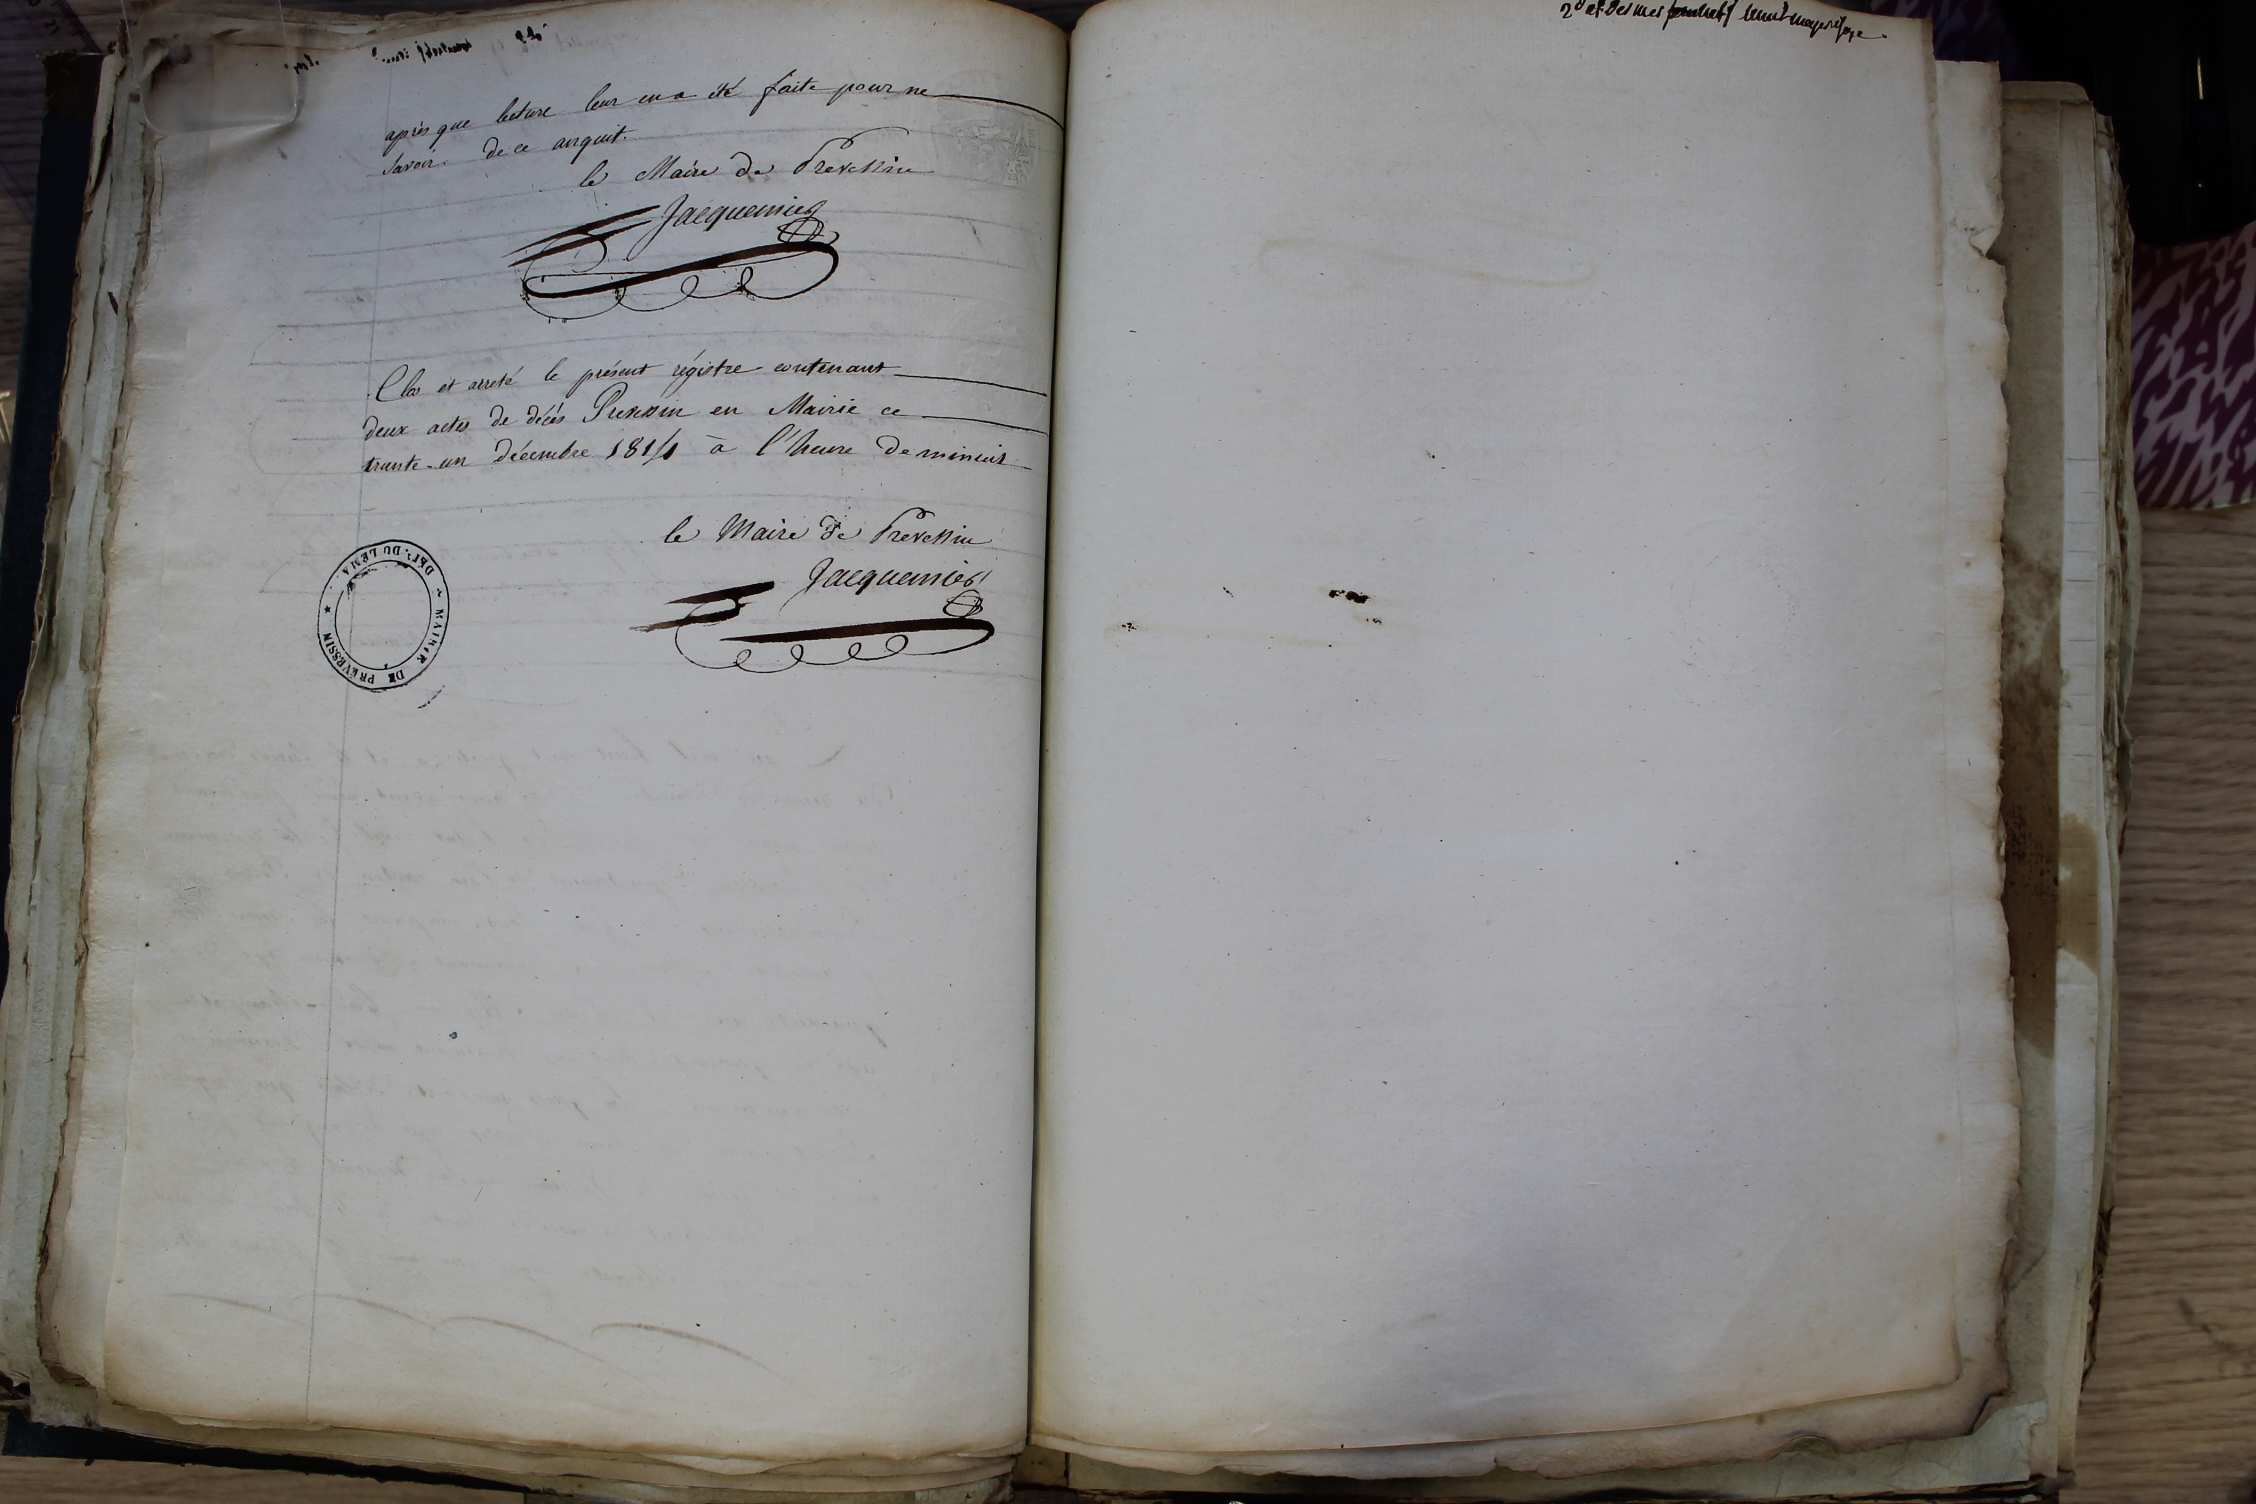 après que lecture leur en a été faite pour ne
savoir. de ce enquit.
le Maire de Prevessin
Jacquemier
Clos et arreté le présent régistre contenant
deux actes de décés Prevessin en Mairie ce
trente-un décembre 1814 à l'heure de minuit
le Maire de Prevessin
Jacquemier
MAIRIE DE PRÉVESSIN ★ DÉPT. DU LEMAN
2d et dernier